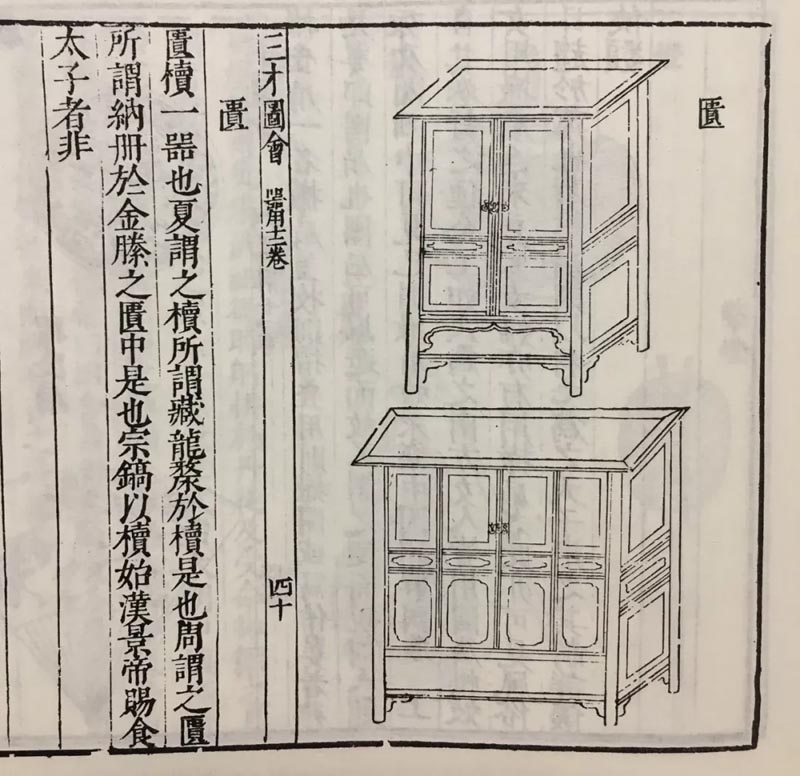 匱
三才圖會 器用十二卷 四十
匱
匱櫝一器也夏謂之櫝所謂藏龍漦於櫝是也周謂之匱
所謂納冊於金縢之匱中是也宗鏑以櫝始漢景帝賜食
太子者非